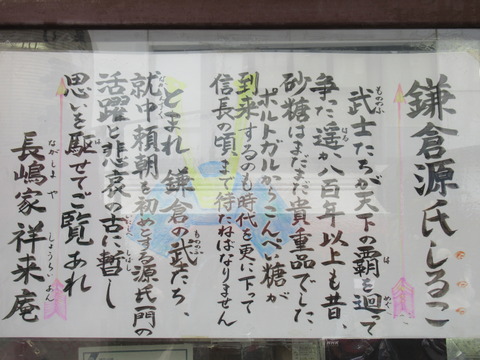 鎌倉源氏しるこ
武士たちが天下の覇を廻って
争った遥か八百年以上も昔、
砂糖はまだまだ貴重品でした
ポルトガルからこんぺい糖が
到来するのも時代を更に下って
信長の頃まで待たねばなりません
とまれ 鎌倉の武たち、
就中頼朝を初めとする源氏一門の
活躍と悲哀の古に暫し
思いを馳せてご覧あれ
長嶋家 祥来庵